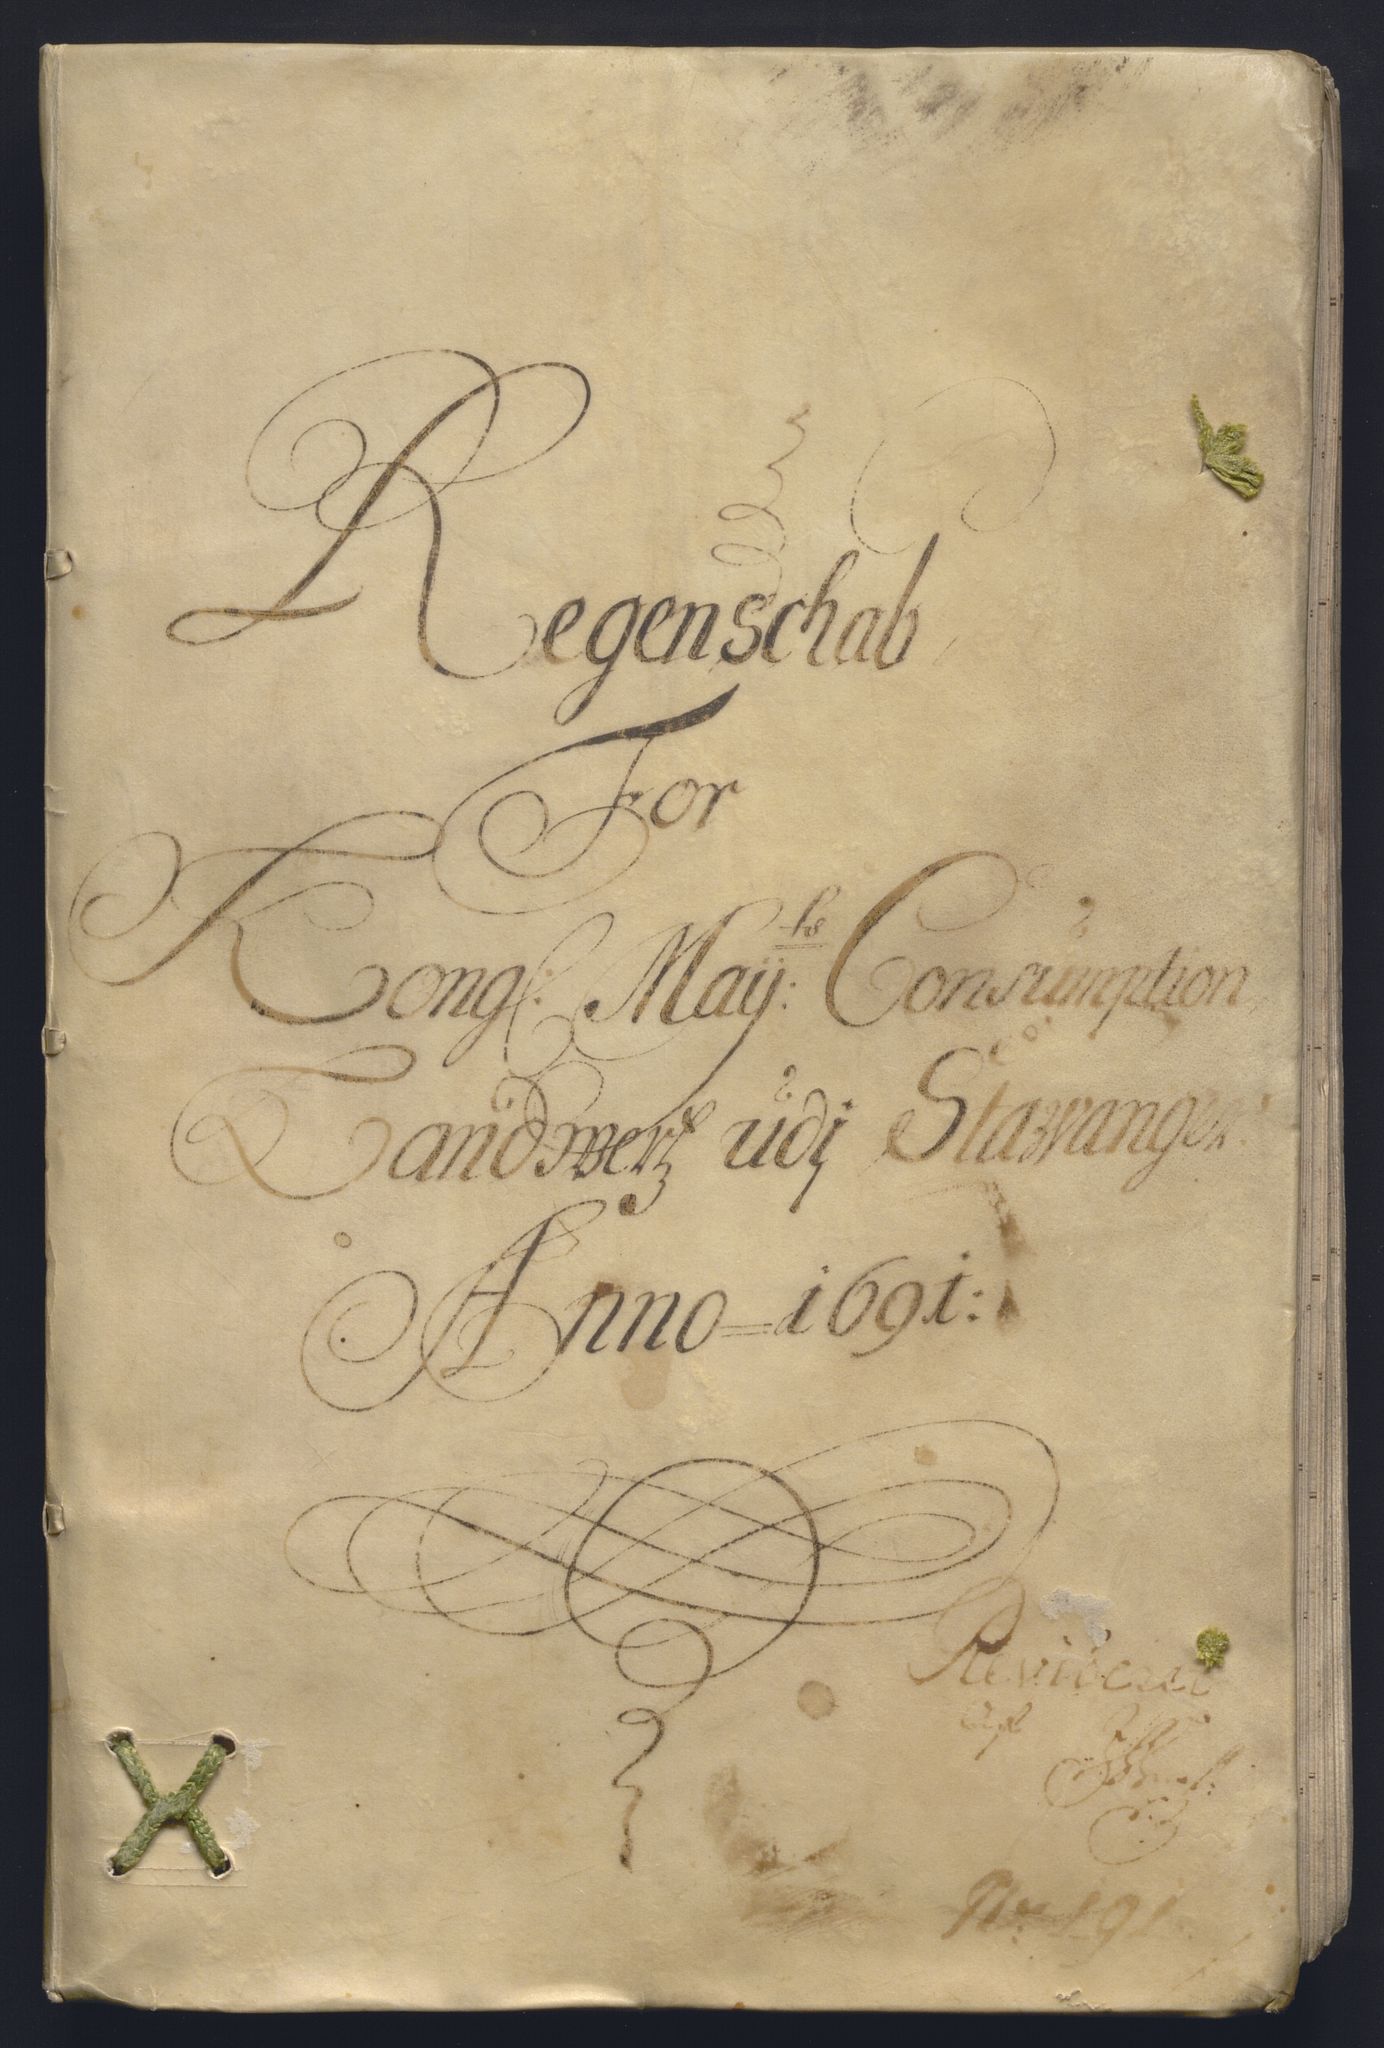 Regenschab
For
Kongl: Maÿ:ts Consumption
udj Stawanger.
Anno = 1691:
Revideret
No: 191